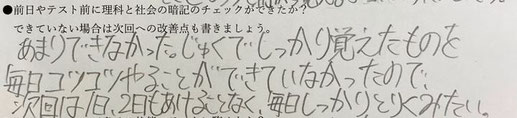 ●前日やテスト前に理科と社会の暗記のチェックができたか?
できていない場合は次回への改善点も書きましょう。
あまりできなかった。じゅくでしっかり覚えたものを
毎日コツコツやることができていなかったので、
次回は1日、2日もあけることなく、毎日しっかりとりくみたい。